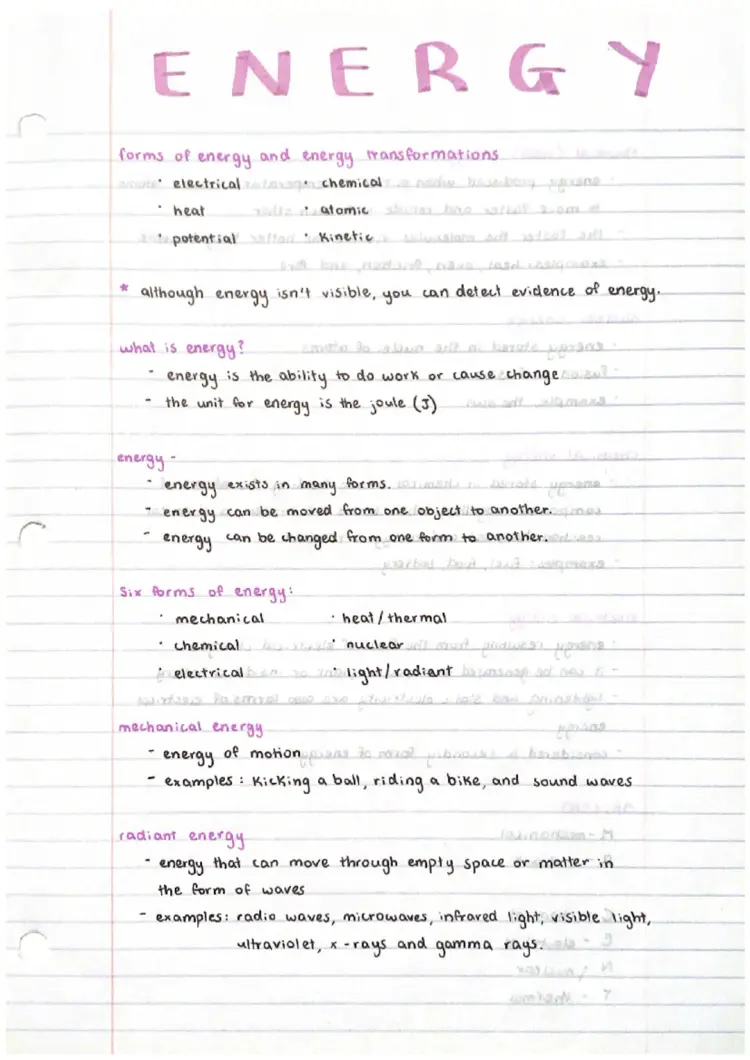 ENERGY
forms of energy and energy transformations
· electrical · chemical
· heat · atomic
· potential · Kinetic
* although energy isn't visible, you can detect evidence of energy.
what is energy?
- energy is the ability to do work or cause change
- the unit for energy is the joule (J)
energy -
- energy exists in many forms.
- energy can be moved from one object to another.
- energy can be changed from one form to another.
Six forms of energy:
· mechanical · heat/thermal
· chemical · nuclear
· electrical · light/radiant
mechanical energy
- energy of motion
- examples: Kicking a ball, riding a bike, and sound waves
radiant energy
- energy that can move through empty space or matter in
the form of waves
- examples: radio waves, microwaves, infrared light, visible light,
ultraviolet, x-rays and gamma rays.